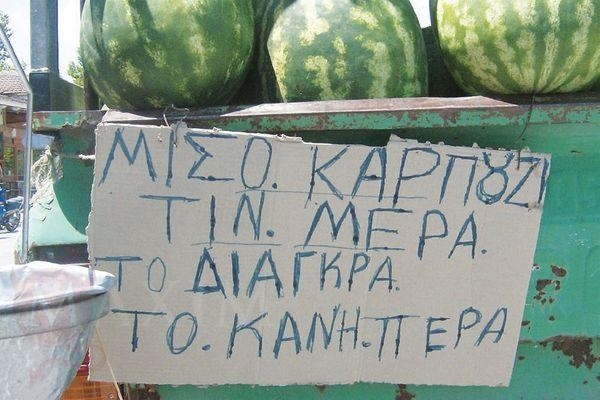 ΜΙΣΟ. ΚΑΡΠȢΖΙ
ΤΙΝ. ΜΕΡΑ.
ΤΟ ΔΙΑΓΚΡΑ.
ΤΟ. ΚΑΝΗ. ΠΕΡΑ